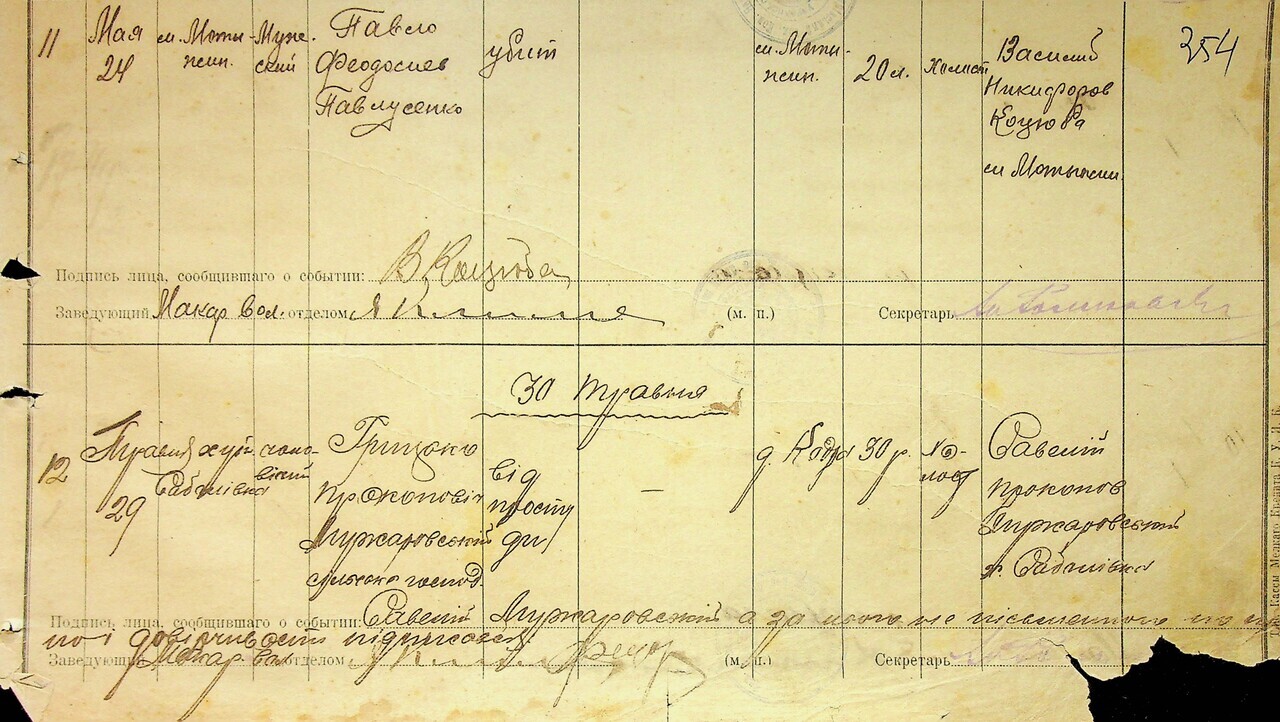 11 Мая 24 м. Моты-жин. Муже-ский Павло Феодосиев Павлусенко убит м. Моты-жин. 20 л. Холост Василий Никифоров Коцюба м Мотыжин 354
Подпись лица, сообщившаго о событии: В. Коцюба
Заведующий Макар. Вол. отделом (м. п.) Секретарь
30 травня
12 Травня 29 хут. чоло-вічий Грицько Прокопович Мужаровський від простуди — д. Кодра 30 р. Хо-лост Савелій Прокопов Мужаровський
Подпись лица, сообщившаго о событии: Савелій Мужаровський а за його не письменого по
його довірчивості підписався
Заведующий Макар. Вол. отделом (м. п.) Секретарь